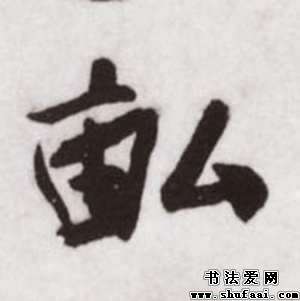 畆
书法爱网
www.shufaai.com